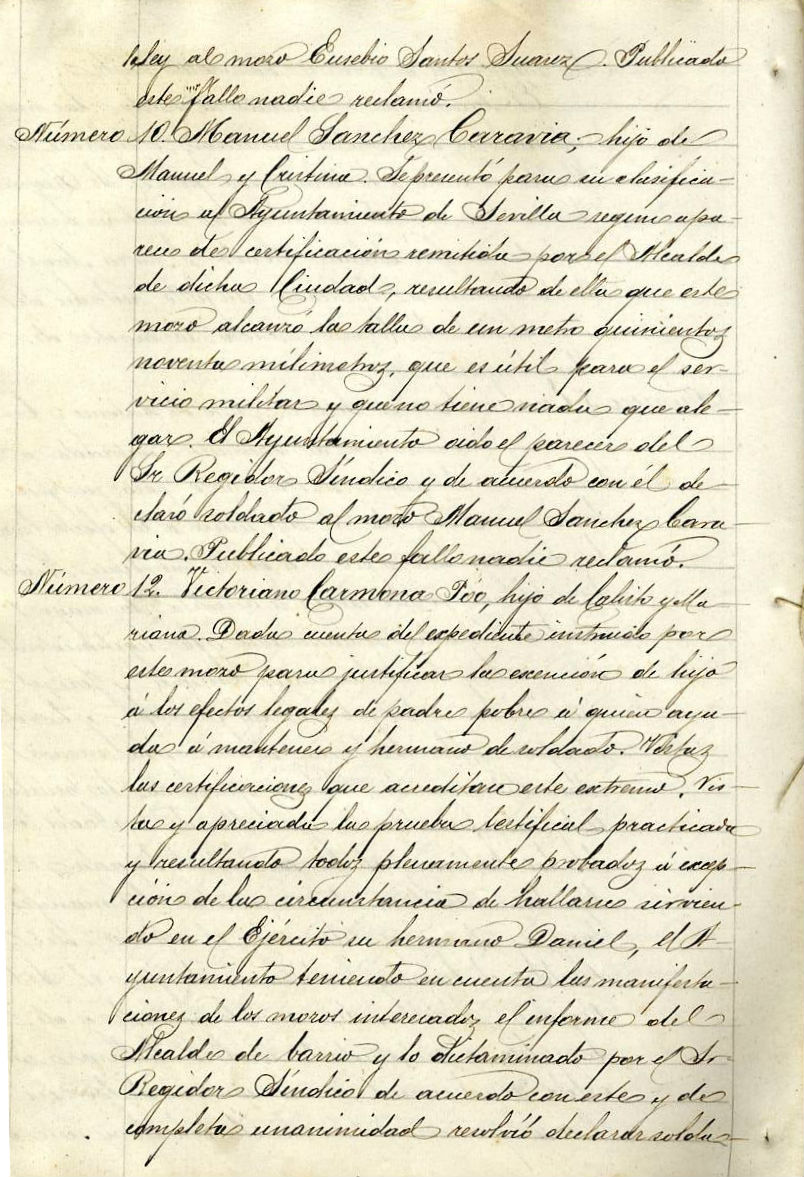 la ley al mozo Eusebio Santos Suarez. Publicado
este fallo nadie reclamó.
Número 10. Manuel Sanchez Caravia, hijo de
Manuel y Cristina. Se presentó para su clasifica-
ción al Ayuntamiento de Sevilla segun apa-
rece de certificación remitida por el Alcalde
de dicha Ciudad, resultando de ella que este
mozo alcanzó la talla de un metro quinientos
noventa milimetros, que es útil para el ser-
vicio militar y que no tiene nada que ale-
gar. El Ayuntamiento oido el parecer del
Sr Regidor Síndico y de acuerdo con él de-
claró soldado al mozo Manuel Sanchez Cara-
via. Publicado este fallo nadie reclamó.
Número 12. Victoriano Carmona Póo, hijo de Calisto y Ma-
riana. Dada cuenta del expediente instruido por
este mozo para justificar la exención de hijo
á los efectos legales de padre pobre á quien ayu-
da á mantener y hermano de soldado. Vistas
las certificaciones que acreditan este extremo. Vis-
ta y apreciada la prueba testifical practicada
y resultando todos plenamente probados á excep-
ción de la circunstancia de hallarse sirvien-
do en el Ejército su hermano Daniel, el A-
yuntamiento teniendo en cuenta las manifesta-
ciones de los mozos interesados, el informe del
Alcalde de barrio y lo dictaminado por el Sr
Regidor Síndico de acuerdo con este y de
completa unanimidad resolvió declarar solda-